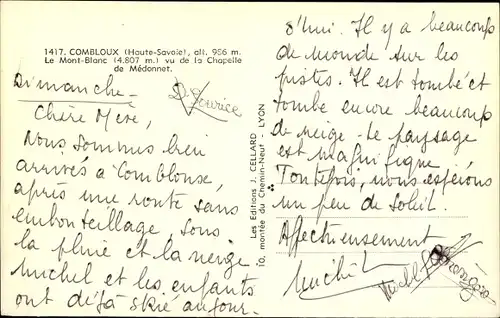 1417. COMBLOUX (Haute-Savoie), alt. 956 m.
Le Mont-Blanc (4.807 m.) vu de la Chapelle
de Médonnet.
Dimanche -
Chère Mère,
Nous sommes bien
arrivés à Comblouse,
après une route sans
embouteillage, sous
la pluie et la neige
Michel et les enfants
ont déjà skié aujour-
Les Editions J. CELLARD
10, montée du Chemin-Neuf - LYON
d'hui. Il y a beaucoup
de monde sur les
pistes. Il est tombé et
tombe encore beaucoup
de neige - le paysage
est magnifique
Toutefois, nous espérons
un peu de soleil.
Affectueusement